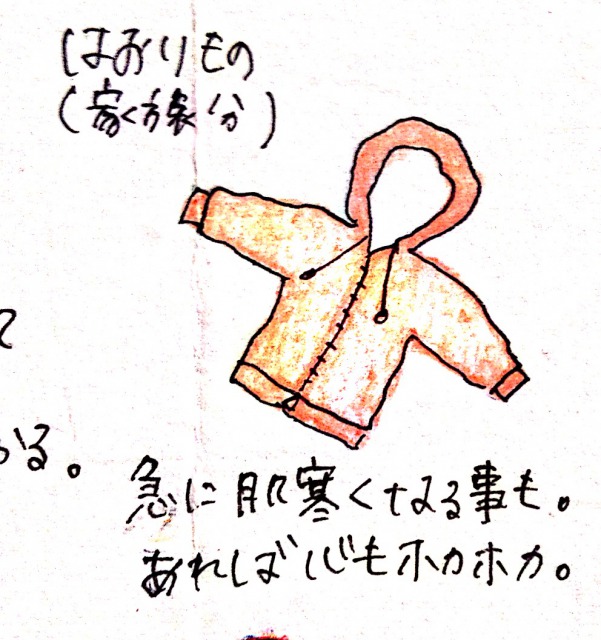 はおりもの
(家族分)
て
かる。
急に肌寒くなる事も。
あれば心もホカホカ。